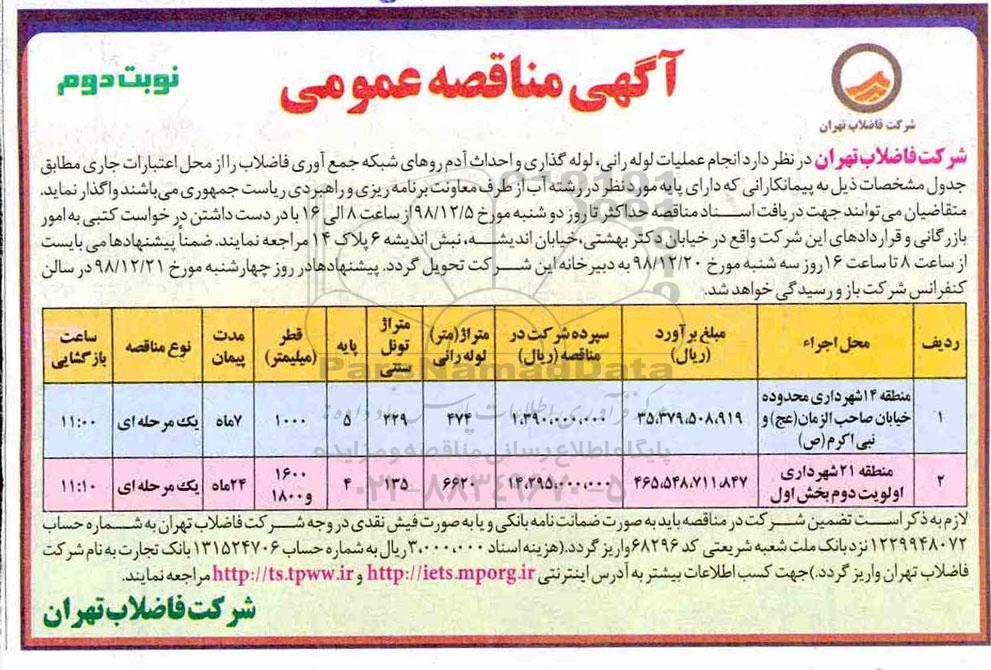 آگهی مناقصه عمومی
نوبت دوم
شرکت فاضلاب تهران
شرکت فاضلاب تهران در نظر دارد انجام عملیات لوله رانی، لوله گذاری و احداث آدم روهای شبکه جمع آوری فاضلاب را از محل اعتبارات جاری مطابق
جدول مشخصات ذیل به پیمانکارانی که دارای پایه مورد نظر در رشته آب از طرف معاونت برنامه ریزی و راهبردی ریاست جمهوری می‌باشند واگذار نماید.
متقاضیان می‌توانند جهت دریافت اسناد مناقصه حداکثر تا روز دو شنبه مورخ ۹۸/۱۲/۵ از ساعت ۸ الی ۱۶ با در دست داشتن در خواست کتبی به امور
بازرگانی و قراردادهای این شرکت واقع در خیابان دکتر بهشتی،خیابان اندیشه، نبش اندیشه ۶ پلاک ۱۴ مراجعه نمایند. ضمناً پیشنهادها می بایست
از ساعت ۸ تا ساعت ۱۶ روز سه شنبه مورخ ۹۸/۱۲/۲۰ به دبیرخانه این شرکت تحویل گردد. پیشنهادها در روز چهارشنبه مورخ ۹۸/۱۲/۲۱ در سالن
کنفرانس شرکت باز و رسیدگی خواهد شد.
ردیف محل اجراء مبلغ برآورد (ریال) سپرده شرکت در مناقصه (ریال) متراژ(متر) لوله رانی متراژ تونل سنتی پایه قطر (میلیمتر) مدت پیمان نوع مناقصه ساعت بازگشایی
۱ منطقه ۱۴ شهرداری محدوده خیابان صاحب الزمان(عج) و نبی اکرم(ص) ۳۵،۴۷۹،۵۰۸،۹۱۹ ۱،۳۹۰،۰۰۰،۰۰۰ ۴۷۴ ۲۲۹ ۵ ۱۰۰۰ ۷ماه یک مرحله ای ۱۱:۰۰
۲ منطقه ۲۱ شهرداری اولویت دوم بخش اول ۴۶۵،۵۴۸،۷۱۱،۸۴۷ ۱۴،۲۹۵،۰۰۰،۰۰۰ ۶۶۲۰ ۱۳۵ ۴ ۱۶۰۰ و۱۸۰۰ ۲۴ماه یک مرحله ای ۱۱:۱۰
لازم به ذکر است تضمین شرکت در مناقصه باید به صورت ضمانت نامه بانکی و یا به صورت فیش نقدی در وجه شرکت فاضلاب تهران به شماره حساب
۱۲۲۹۹۴۸۰۷۲ نزد بانک ملت شعبه شریعتی کد ۶۸۲۹۶ واریز گردد.(هزینه اسناد ۳،۰۰۰،۰۰۰ ریال به شماره حساب ۱۳۱۵۲۴۷۰۶ بانک تجارت به نام شرکت
فاضلاب تهران واریز گردد.)جهت کسب اطلاعات بیشتر به آدرس اینترنتی http://iets.mporg.ir و http://ts.tpww.ir مراجعه نمایند.
شرکت فاضلاب تهران
ParsNamadData
پایگاه اطلاع رسانی مناقصه و مزایده
۰۲۱-۸۸۳۴۹۶۷۰-۵